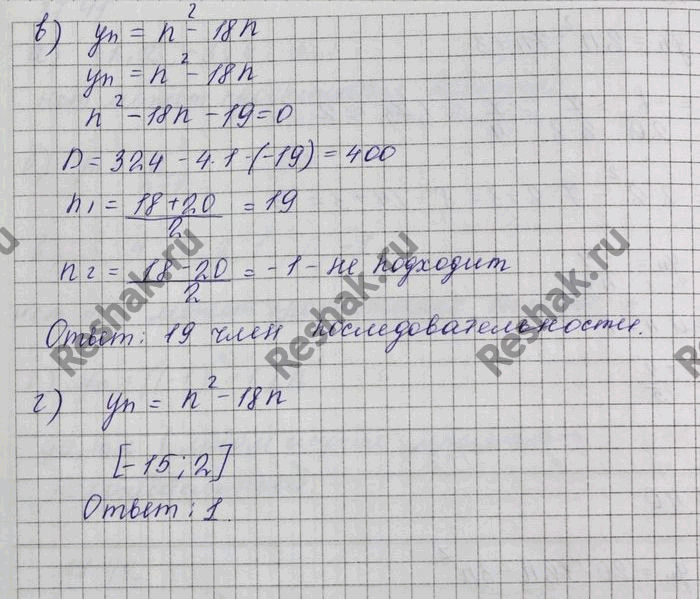 в) yn = n² - 18n
yn = n² - 18n
n² - 18n - 19 = 0
D = 324 - 4·1·(-19) = 400
n1 = (18+20)/2 = 19
n2 = (18-20)/2 = -1 - не подходит
Ответ: 19 член последовательности.
г) yn = n² - 18n
[-15; 2]
Ответ: 1.
Reshak.ru
Reshak.ru
Reshak.ru